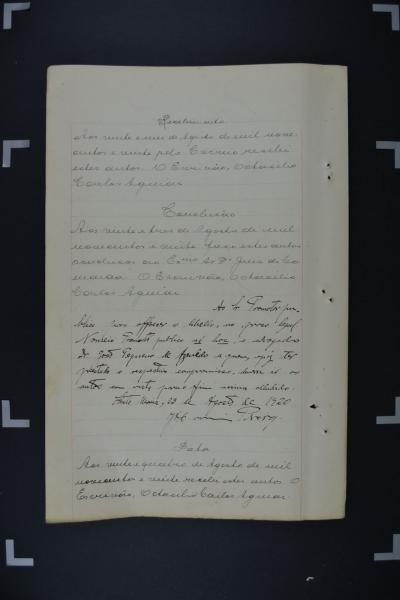 Recebimento
Aos vinte e um de Agosto de mil nove
centos e vinte pelo Correio recebi
estes autos. O Escrivão, Octacilio
Carlos Aguiar.
Conclusão
Aos vinte e tres de Agosto de mil
novecentos e vinte faço estes autos
conclusos ao Exmo Sr Dr Juiz de Co
marca. O Escrivão, Octacilio
Carlos Aguiar
Ao Sr. Promotor pu-
blico para offerecer o libello, no prazo legal.
Nomeio Promotor publico ad hoc, o advogado
Dr João de e quem, tes
prestado o respectivo compromisso, os
autos com vista para o fim acima
23 de Agosto de 1920
Data
Aos vinte e quatro de Agosto de mil
novecentos e vinte recebi estes autos. O
Escrivão, Octacilio Carlos Aguiar.